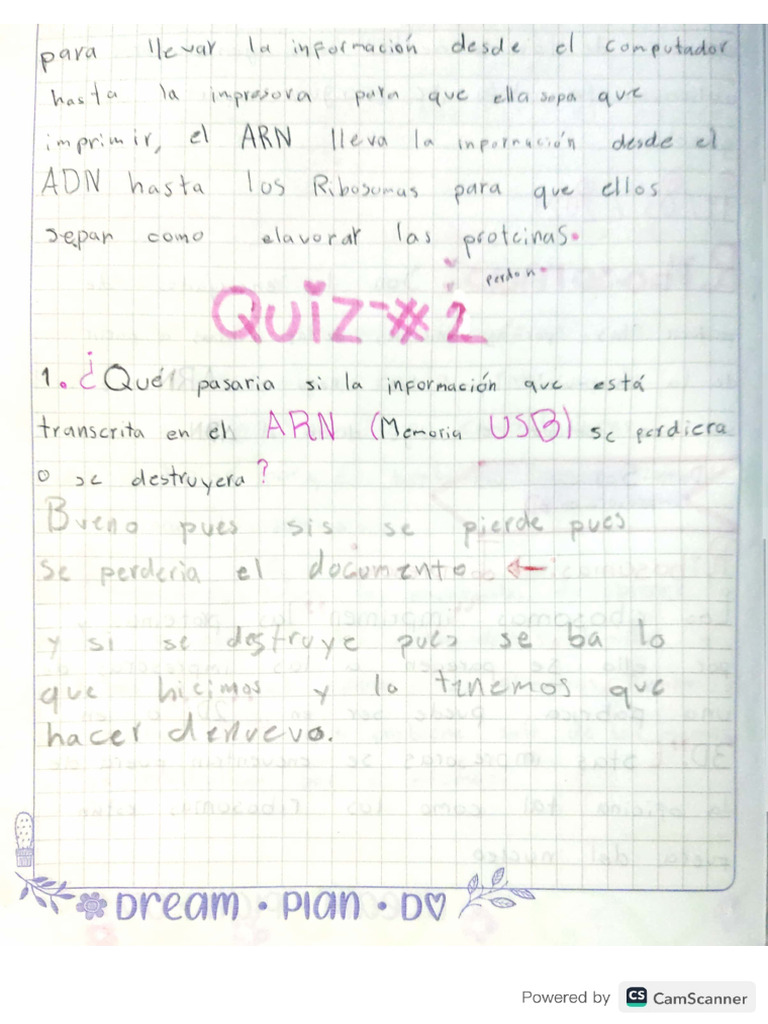 para llevar la información desde el computador
hasta la impresora para que ella sopa que
imprimir, el ARN lleva la información desde el
ADN hasta los Ribosomas para que ellos
sepan como elavorar las proteinas.
perdon.
QUIZ #2
1. ¿Qué pasaria si la información que está
transcrita en el ARN (Memoria USB) se perdiera
o se destruyera?
Bueno pues sis se pierde pues
se perderia el documento ←
y si se destruye pues se ba lo
que hicimos y lo tenemos que
hacer denuevo.
DREAM • PLAN • DO
Powered by CS CamScanner